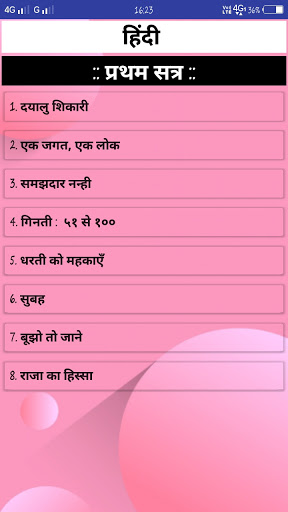 4G G 16:23 4G 36%
हिंदी
:: प्रथम सत्र ::
1. दयालु शिकारी
2. एक जगत, एक लोक
3. समझदार नन्ही
4. गिनती : ५१ से १००
5. धरती को महकाएँ
6. सुबह
7. बूझो तो जाने
8. राजा का हिस्सा